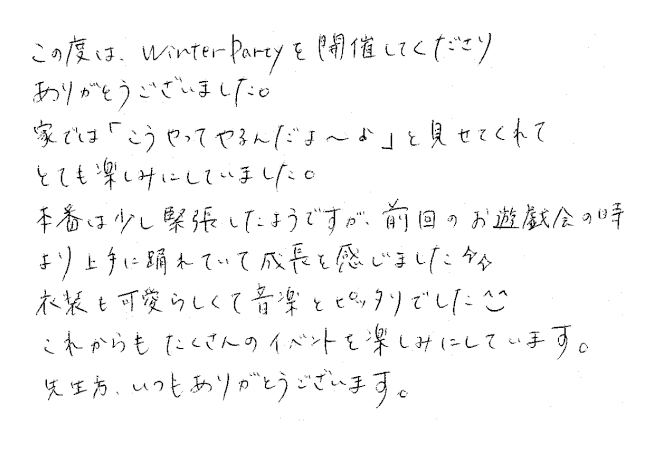 この度は、Winter Partyを開催してくださり
ありがとうございました。
家では「こうやってやるんだよ〜♪」と見せてくれて
とても楽しみにしていました。
本番は少し緊張したようですが、前回のお遊戯会の時
より上手に踊れていて成長を感じました☆☆
衣装も可愛らしくて音楽とピッタリでした^^
これからもたくさんのイベントを楽しみにしています。
先生方、いつもありがとうございます。